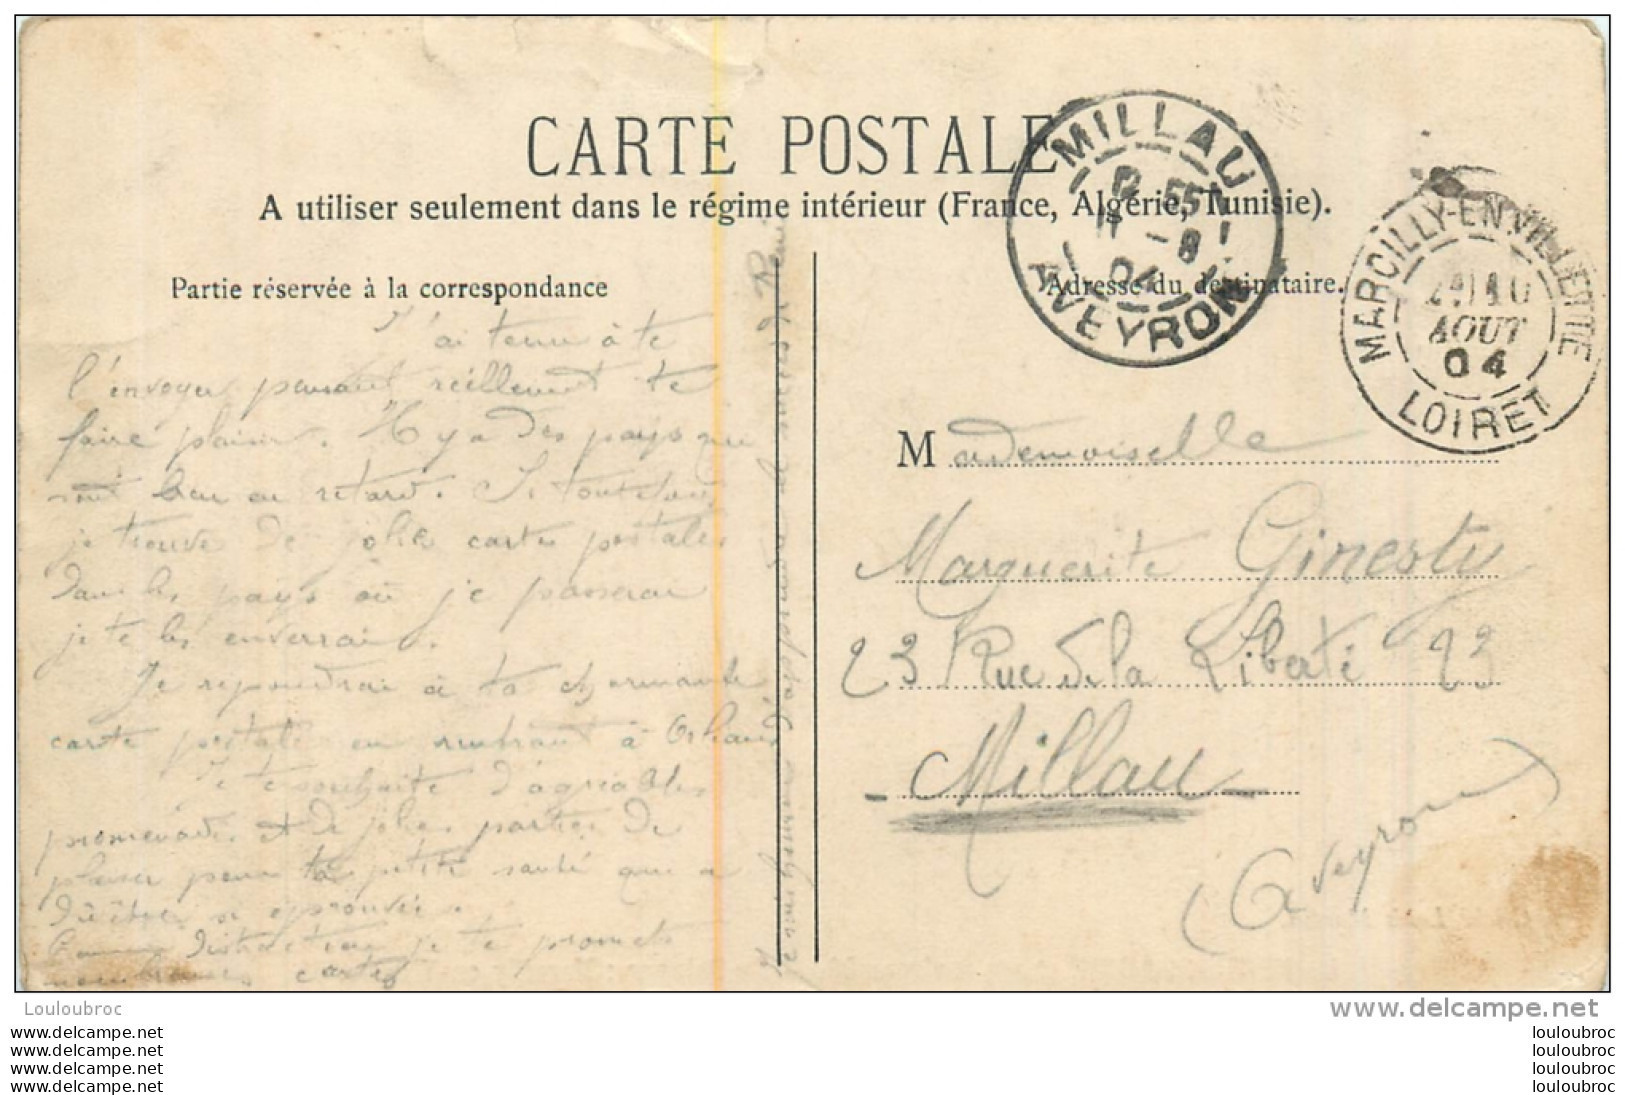 CARTE POSTALE
A utiliser seulement dans le régime intérieur (France, Algérie, Tunisie).
Partie réservée à la correspondance
Adresse du destinataire.
MILLAU
55
11 -8
04
AVEYRON
MARCILLY-EN-VILLETTE
10
AOUT
04
LOIRET
J'ai tenu à te
l'envoyer pensant réellement te
faire plaisir. Il y a des pays qui
sont bien en retard. Si toutefois
je trouve de jolies cartes postales
dans les pays où je passerai
je te les enverrai.
Je répondrai à ta charmante
carte postale en rentrant à Orléans
Je te souhaite d'agréables
promenades et de jolies parties de
plaisir pour ta petite santé qui a
si éprouvée.
distraction je te promets
nombreuses cartes
Je suis heureux d'apprendre le succès de René
Mademoiselle
Marguerite Ginesty
23 Rue de la Liberté 23
- Millau -
(Aveyron)
Louloubroc
www.delcampe.net
www.delcampe.net
www.delcampe.net
www.delcampe.net
www.delcampe.net
louloubroc
louloubroc
louloubroc
louloubroc